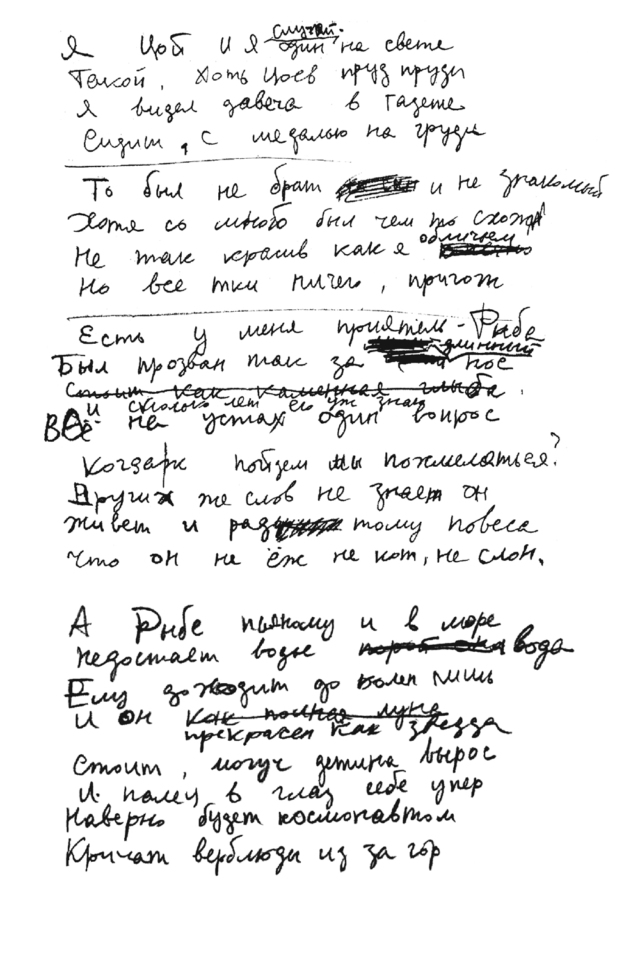 случай.
Я Цой И Я один на свете
Такой, Хоть Цоев пруд пруди
Я видел давеча в газете
Сидит, с медалью на груди
То был не брат и не знакомый
Хотя со мною был чем то схож
обличием
Не так красив как я
Но все тки ничего, пригож
Есть у меня приятель - Рыбе
длинный
Был прозван так за нос
Стоит как каменная глыба
и сколько лет его уж знаю
ВСё на устах один вопрос
Когдарк пойдем мы похмелаться?
Других же слов не знает он
живет и рад тому повеса
Что он не ёж не кот, не слон.
А Рыбе пьяному и в море
недостает воды вода
Ему доходит до колен лишь
И он как полная луна
прекрасен как звезда
Стоит, могуч детина вырос
И палец в глаз себе упер
Наверно будет космонавтом
Кричат верблюды из за гор